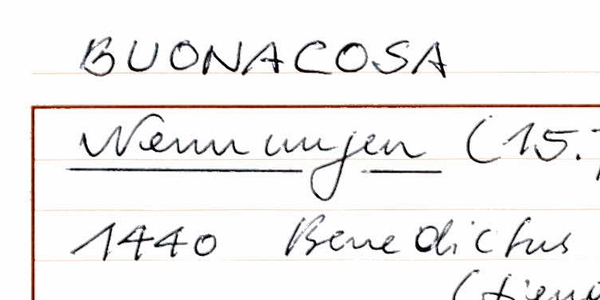 BUONACOSA
Nennungen (15.
1440 Benedictus